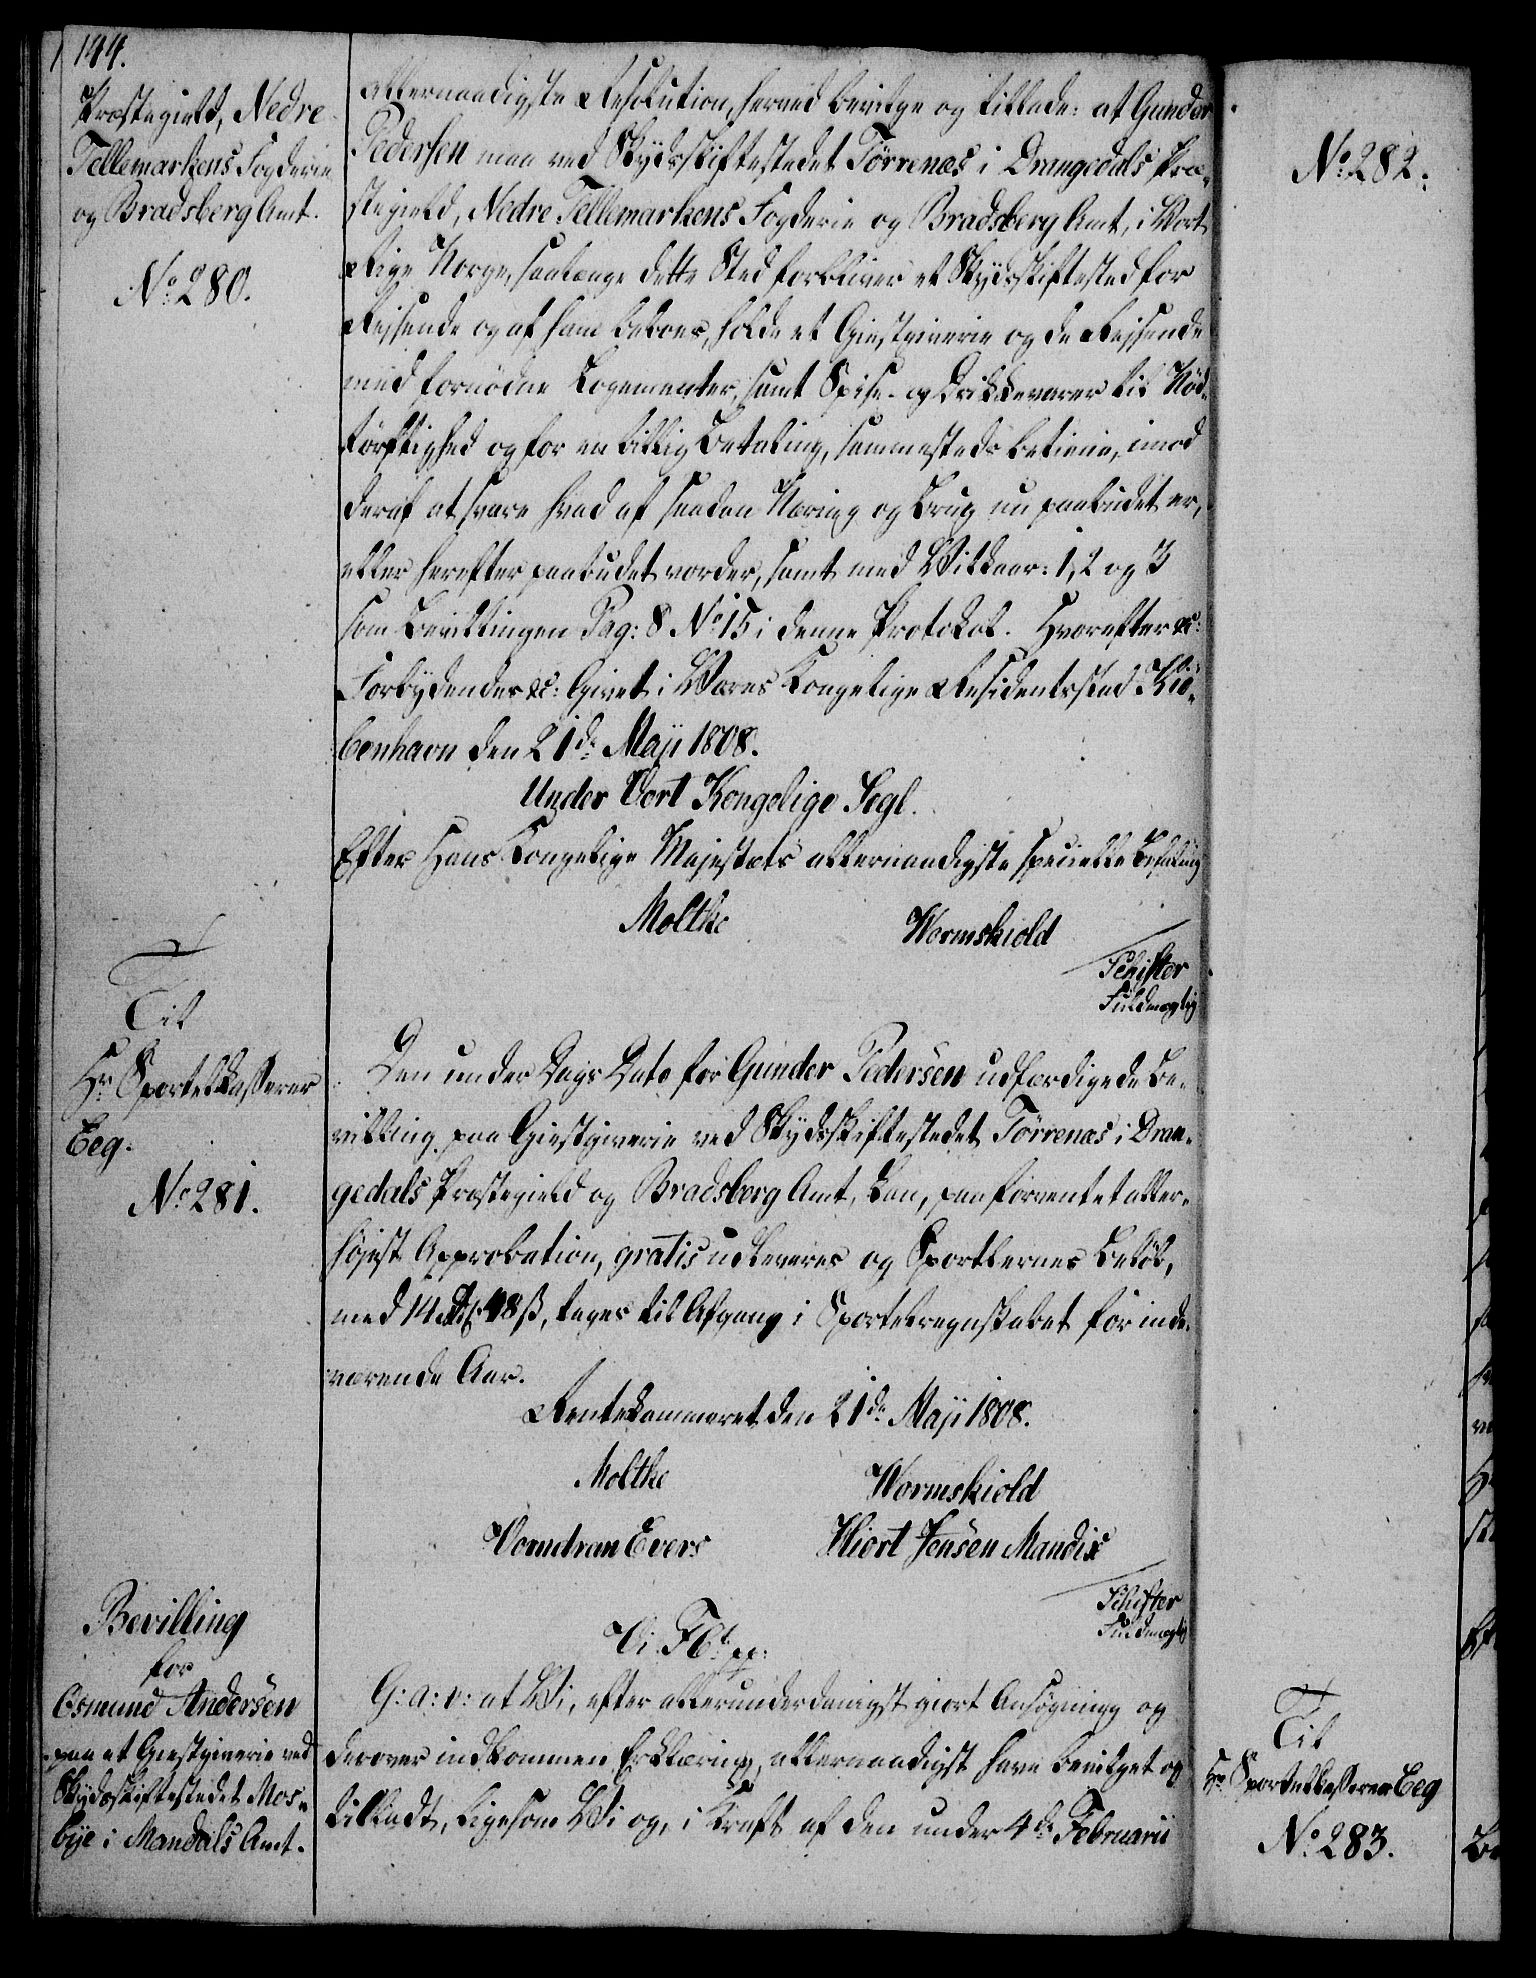 144.
Præstegield, Nedre
Tellemarkens Fogderie
og Bradsberg Amt.
No. 280.
allernaadigste Resolution, herved bevilge og tillade: at Gunder
Pedersen maa ved Skydsskiftestedet Törrenæs i Drangedals Præ-
stegield, Nedre Tellemarkens Fogderie og Bradsberg Amt, i Vort
Rige Norge, saalænge dette Sted forbliver et Skydsskiftested for
Reisende og af ham beboes, holde et Giestgiverie og de Reisende
med fornødne Logementer, samt Spise- og Drikkevarer til Nød-
törftighed og for en billig Betaling, sammesteds betiene, imod
deraf at svare hvad af saadan Næring og Brug nu paabudet er,
eller herefter paabudet vorder, samt med Vilkaar: 1, 2 og 3
som Bevillingen Pag: 8 No. 15 i denne Protokol. Hvorefter &c:
Forbydendes &c: Givet i Vores Kongelige Residentsstad Kiö-
benhavn den 21de Maji 1808.
Under Vort Kongelige Segl.
Efter Hans Kongelige Majestæts allernaadigste specielle Befaling
Moltke Wormskiold
Schifter
Fuldmægtig
Til
Hr. Sportelkasserer
Eeg.
No. 281.
Den under Dags Dato for Gunder Pedersen udfærdigede Be-
villing paa Giestgiverie ved Skydsskiftestedet Törrenæs i Dran-
gedals Præstegield og Bradsberg Amt, kan, paa forventet aller-
høiest Approbation, gratis udleveres og Sportlernes Beløb,
med 14 Rd. 48 ß, tages til Afgang i Sportelregnskabet for inde-
værende Aar.
Rentekammeret den 21de Maji 1808.
Moltke Wormskiold
Vorndran Evers Hiort Jensen Mandix
Schifter
Fuldmægtig
Bevilling
for
Osmund Andersen
paa et Giestgiverie ved
Skydsskiftestedet Mos-
bye i Mandals Amt.
Vi Fr. 6t. pp:
G: a: v: at Vi, efter allerunderdanigst giort Ansøgning og
derover indkommen Erklæring, allernaadigst have bevilget og
tilladt, ligesom Vi og, i Kraft af den under 4de Februarii
No. 282.
Til
Hr. Sportelkasserer Eeg
No. 283.